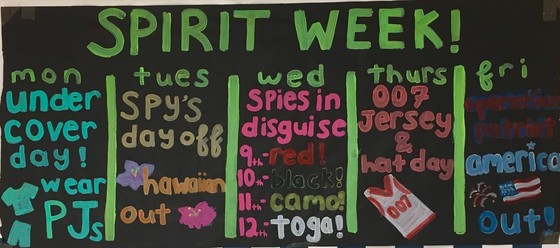 SPIRIT WEEK!
mon
under
cover
day!
wear
PJs
tues
SPY'S
day off
hawaiian
out
wed
SPies in
disguise
9th- red!
10th- black!
11th- camo!
12th- toga!
thurs
007
Jersey
&
hat day
007
fri
operation
patriot
america
out!